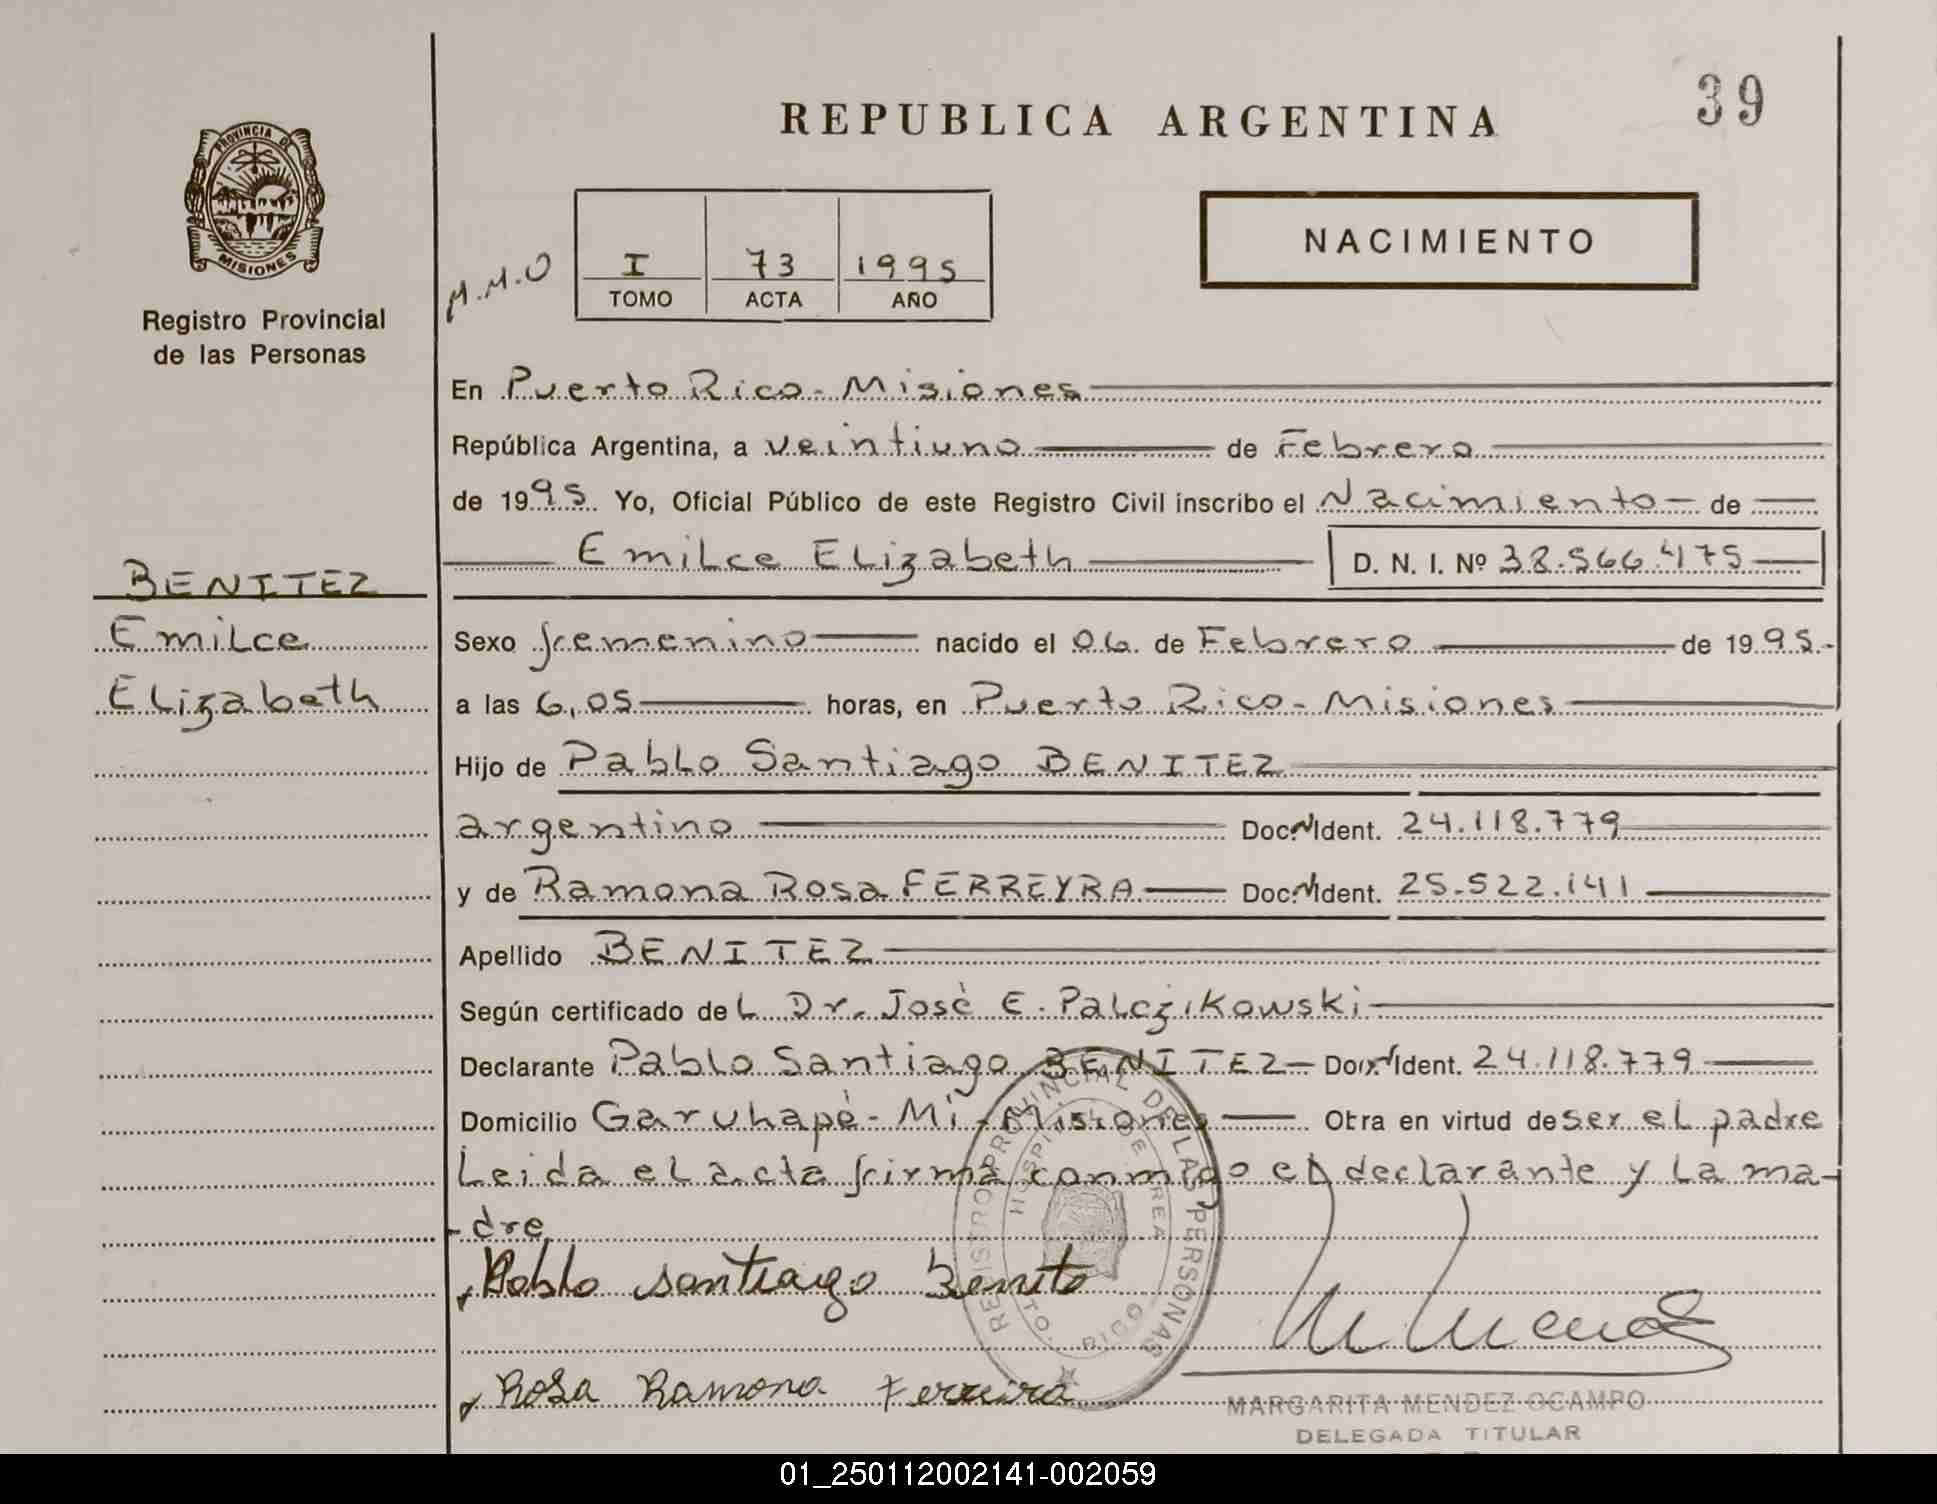 39
REPUBLICA ARGENTINA
PROVINCIA DE
MISIONES
Registro Provincial
de las Personas
M.M.O
I 73 1995
TOMO ACTA AÑO
NACIMIENTO
En Puerto Rico - Misiones
República Argentina, a veintiuno de Febrero
de 1995. Yo, Oficial Público de este Registro Civil inscribo el Nacimiento de
Emilce Elizabeth D. N. I. Nº 38.566.475
BENITEZ
Emilce
Elizabeth
Sexo femenino nacido el 06 de Febrero de 1995.-
a las 6,05 horas, en Puerto Rico - Misiones
Hijo de Pablo Santiago BENITEZ
argentino Doc. Ident. 24.118.779
y de Ramona Rosa FERREYRA Doc. Ident. 25.522.141
Apellido BENITEZ
Según certificado del Dr. José E. Palczikowski
Declarante Pablo Santiago BENITEZ Doc. Ident. 24.118.779
Domicilio Garuhapé - Mí - Misiones Obra en virtud de ser el padre
Leida el acta firma conmigo el declarante y la ma-
-dre
Pablo santiago Benito
Rosa Ramona Ferreira
REGISTRO PROVINCIAL DE LAS PERSONAS
HOSPITAL DE AREA
PTO. RICO
M Mendez
MARGARITA MENDEZ OCAMPO
DELEGADA TITULAR
01_250112002141-002059